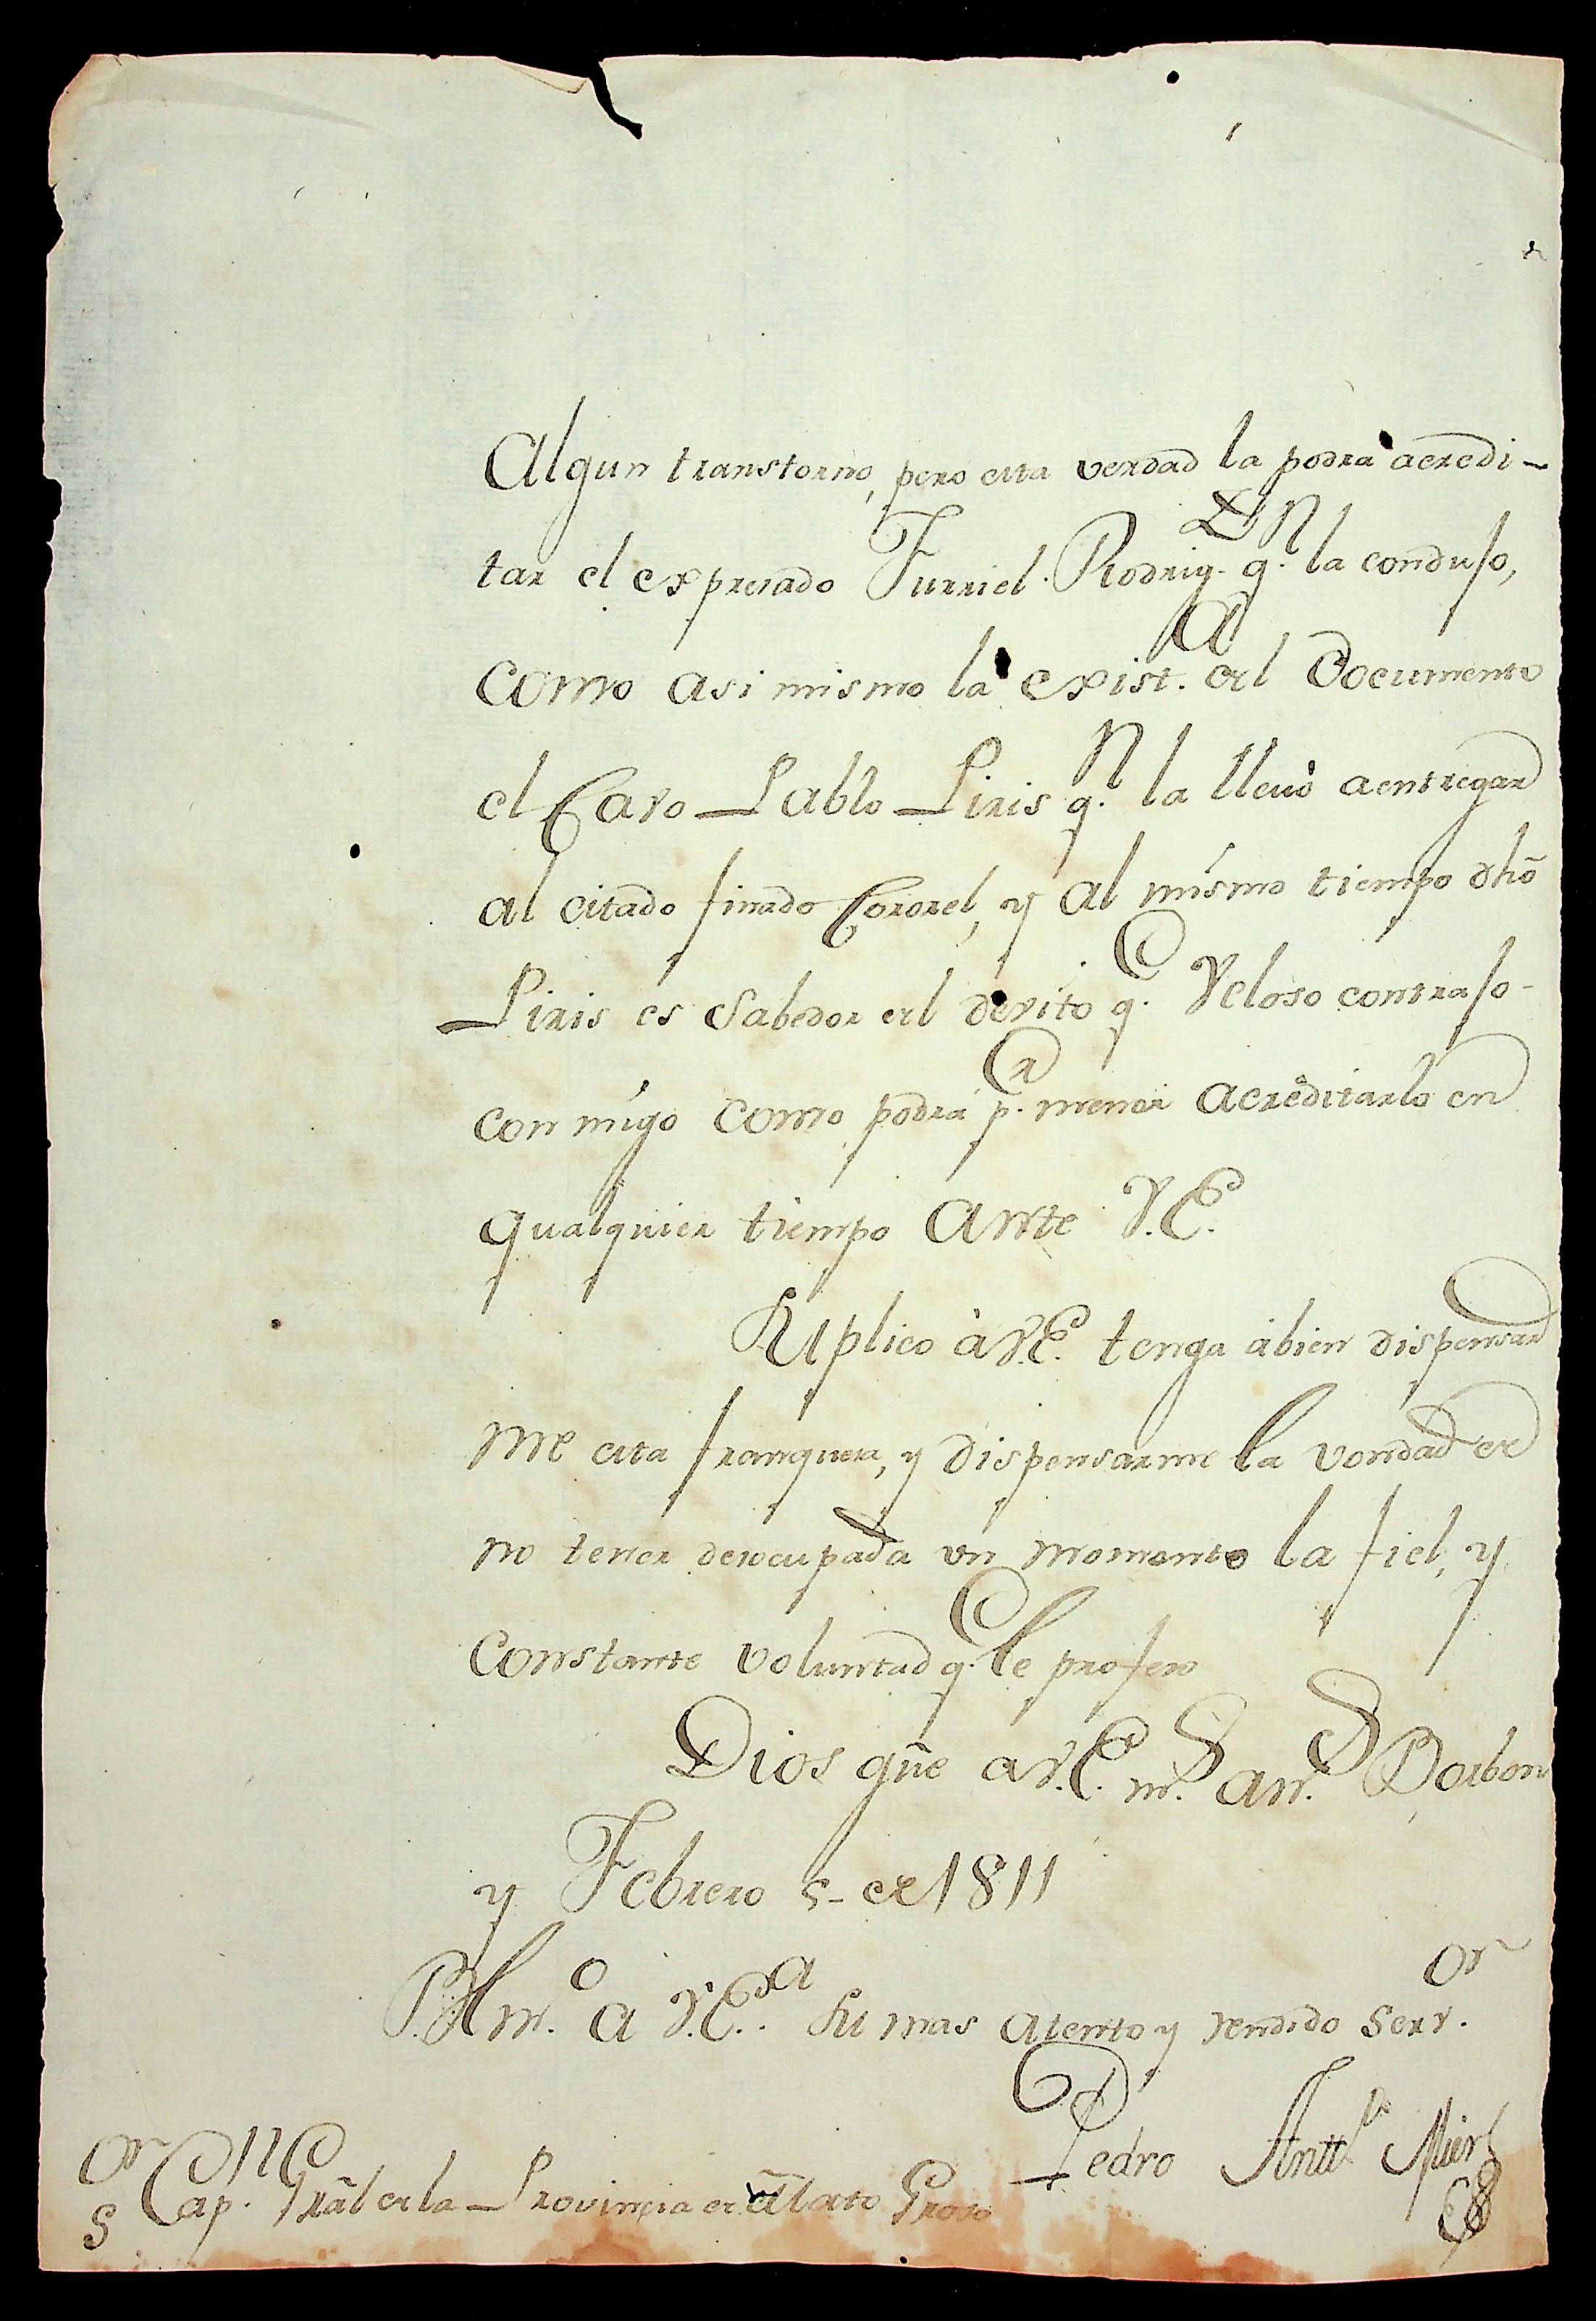 Algun transtorno, pero esta verdad la podrá acredi-
tar el expresado Furriel Rodrig.z q.n la condujo,
como asi mismo la exist.a del Documento
el Cavo Pablo Piris q.n la llevó a entregar
al citado finado Coronel, y al mismo tiempo dhõ
Piris es Sabedor del devito q.e Veloso contrajo
con migo como podrá p.r menor acreditarlo en
qualquier tiempo Ante V.E.
Suplico à V.E. tenga àbien dispensar
me esta franqueza, y dispensarme la vondad de
no tener desocupada un momento la fiel, y
Constante voluntad q.e le profeso
Dios gũe a V.E. m.s an.s Borbon
y Febrero 5 de 1811
B.L.m.o a V.E.a Su mas atento y rendido Serv.or
Pedro Antt.o Mier
S.or Cap.n Grãl de la Provincia de Mato Groso